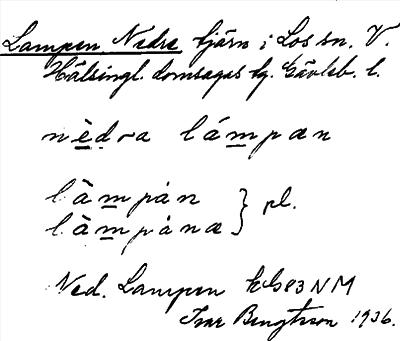 Lampen, Nedre tjärn i Los sn. V.
Hälsingl. domsagas tg. Gävleb. l.
nèdra lámpæn
làmpán
làmpánæ } pl.
Ned. Lampen
Ivar Bengtsson 1936.